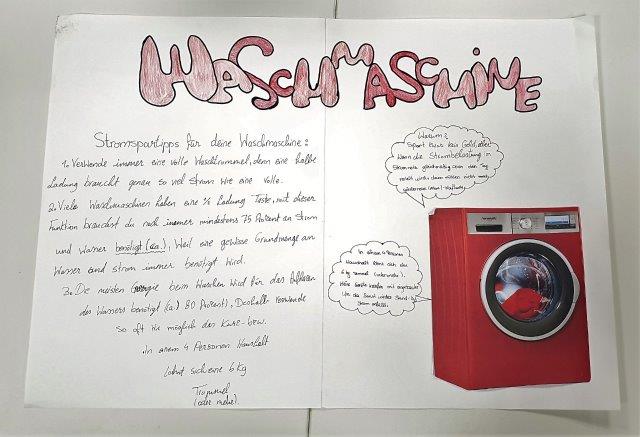 WASCHMASCHINE
Stromspartipps für deine Waschmaschine:
1. Verwende immer eine volle Waschtrommel, denn eine halbe
Ladung braucht genau so viel Strom wie eine volle.
2. Viele Waschmaschinen haben eine ½ Ladung Taste, mit dieser
Funktion brauchst du noch immer mindestens 75 Prozent an Strom
und Wasser benötigt (ca.), weil eine gewisse Grundmenge an
Wasser und Strom immer benötigt wird.
3. Die meisten Energie beim Waschen wird für das Aufheizen
des Wassers benötigt (ca.) 80 Prozent). Deshalb verwende
so oft wie möglich den Kurz- bzw.
In einem 4 Personen Haushalt
lohnt sich eine 6 kg
Trommel
(oder mehr).
Warum?
Spart zwar kein Geld, aber
Wenn die Strombelastung im
Stromnetz gleichmäßig über den Tag
verteilt wird, dann müssen nicht noch
In einem 4 Personen
Haushalt lohnt sich die
6 kg Trommel
Strom